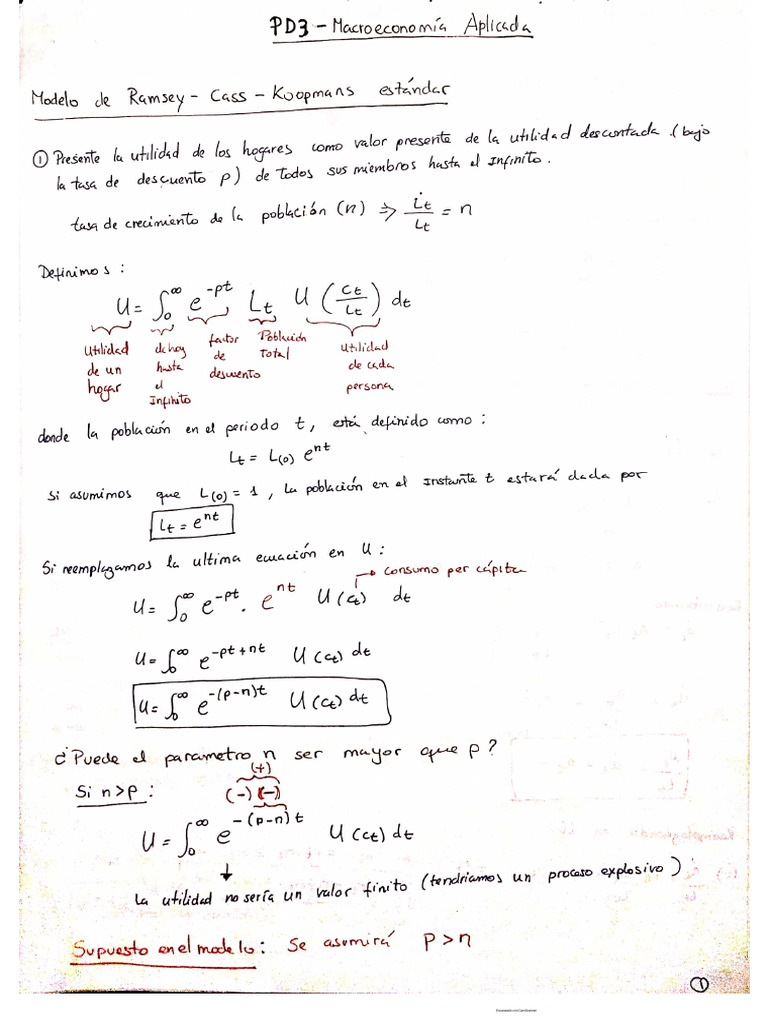 PD3 - Macroeconomía Aplicada
Modelo de Ramsey - Cass - Koopmans estándar
① Presente la utilidad de los hogares como valor presente de la utilidad descontada (bajo
la tasa de descuento ρ) de todos sus miembros hasta el infinito.
tasa de crecimiento de la población (n) => L̇t/Lt = n
Definimos:
U = ∫₀^∞ e^(-ρt) Lt U(Ct/Lt) dt
Utilidad de un hogar
de hoy hasta el Infinito
factor de descuento
Población Total
Utilidad de cada persona
donde la población en el periodo t, está definido como:
Lt = L(0) e^(nt)
Si asumimos que L(0) = 1, la población en el instante t estará dada por
Lt = e^(nt)
Si reemplazamos la ultima ecuación en U:
→ consumo per cápita
U = ∫₀^∞ e^(-ρt) . e^(nt) U(ct) dt
U = ∫₀^∞ e^(-ρt+nt) U(ct) dt
U = ∫₀^∞ e^(-(ρ-n)t) U(ct) dt
¿Puede el parametro n ser mayor que ρ?
(+)
Si n>ρ: (-) (-)
U = ∫₀^∞ e^(-(ρ-n)t) U(ct) dt
↓
la utilidad no sería un valor finito (tendriamos un proceso explosivo)
Supuesto en el modelo: Se asumirá ρ>n
①